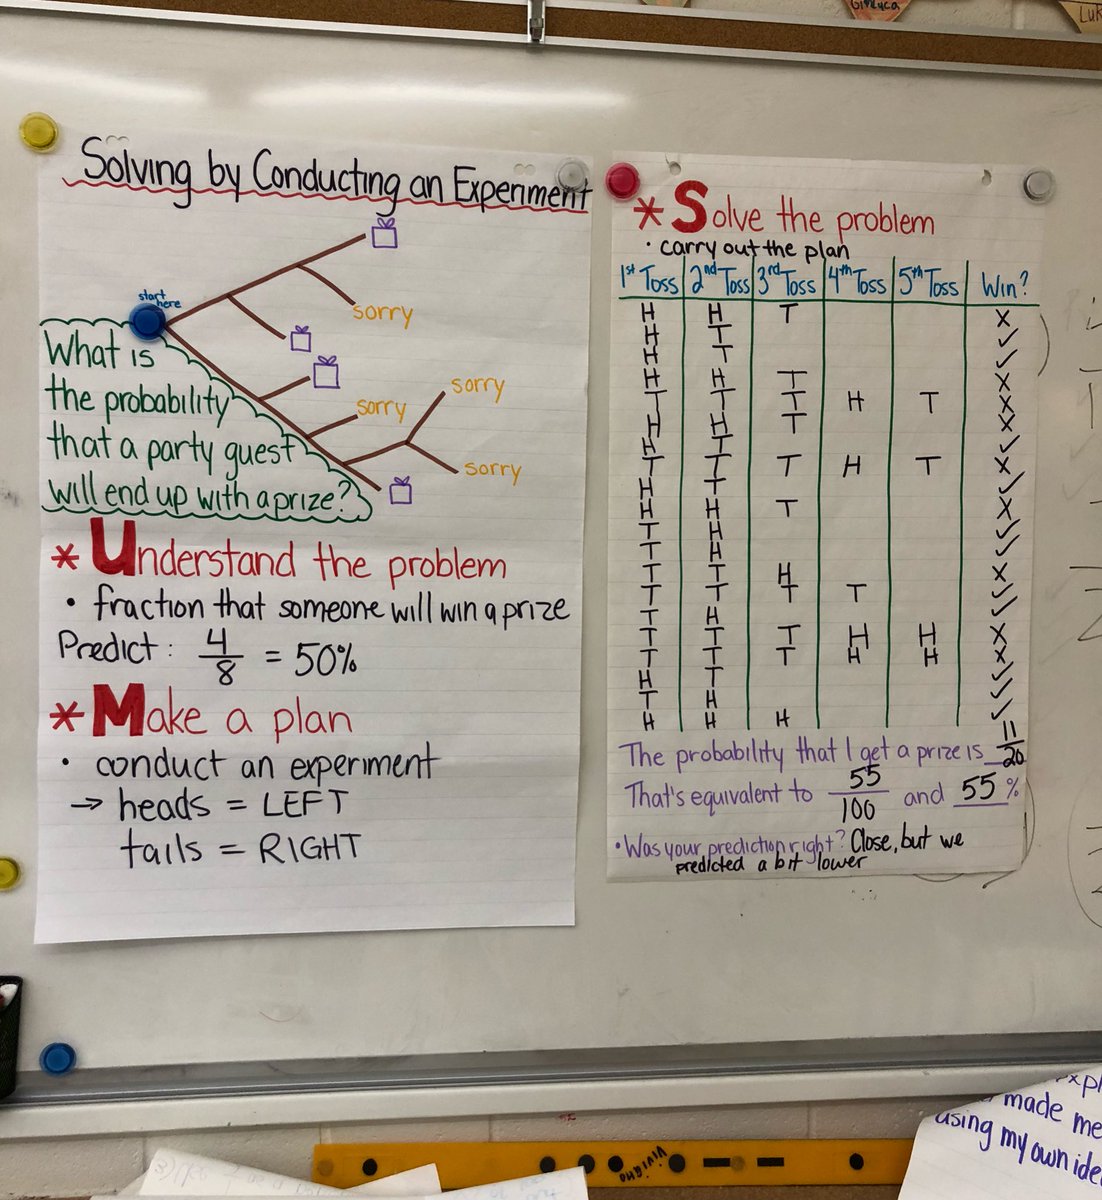 Solving by Conducting an Experiment
start here
sorry
sorry
sorry
sorry
What is
the probability
that a party guest
will end up with a prize?
* Understand the problem
• fraction that someone will win a prize
Predict: 4/8 = 50%
* Make a plan
• conduct an experiment
→ heads = LEFT
tails = RIGHT
* Solve the problem
• carry out the plan
1st Toss 2nd Toss 3rd Toss 4th Toss 5th Toss Win?
H H T x
H T ✓
H T ✓
H H T x
T T T H T x
H H T x
H T ✓
T T T H T x
H T ✓
H H T x
T H ✓
T H ✓
T T H x
T T T T ✓
T H ✓
T T T H H x
T T T H H x
H T ✓
T H ✓
H H H ✓
The probability that I get a prize is 11/20
That's equivalent to 55/100 and 55 %
• Was your prediction right? Close, but we
predicted a bit lower
Gianluca
Luk
made me
using my own idea
VIVIANO